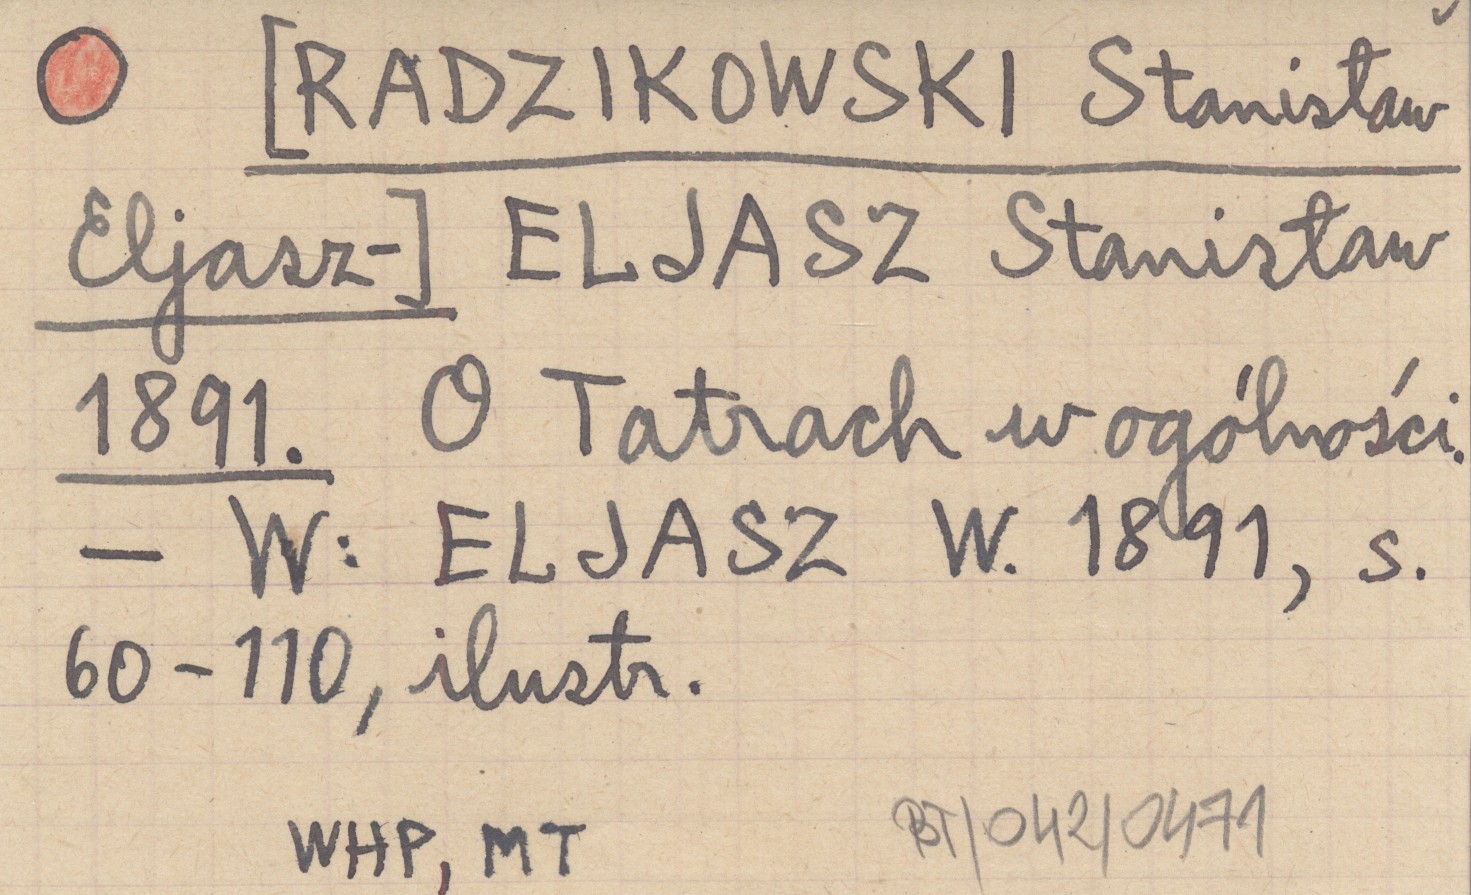 [RADZIKOWSKI Stanisław
Eljasz-] ELJASZ Stanisław
1891. O Tatrach w ogólności.
— W: ELJASZ W. 1891, s.
60-110, ilustr.
WHP, MT
BT/042/0471